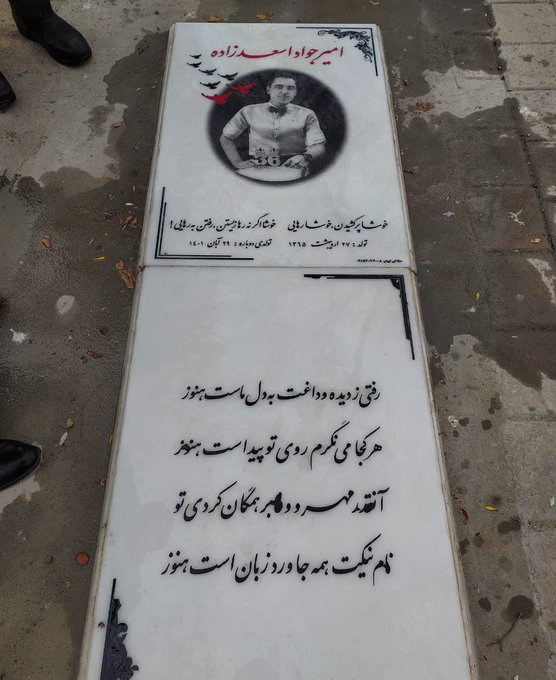 امیرجواد اسعدزاده
36
خوشا پرکشیدن، خوشا رهایی خوشا اگر نه رها زیستن، رفتن به رهایی!
تولد: ۲۷ اردیبهشت ۱۳۶۵ تولدی دوباره: ۲۹ آبان ۱۴۰۱
رفتی ز دیده و داغت به دل ماست هنوز
هر کجا می نگرم روی تو پیداست هنوز
آنقدر مهر و وفا بر همگان کردی تو
نام نیکت همه جا ورد زبان است هنوز